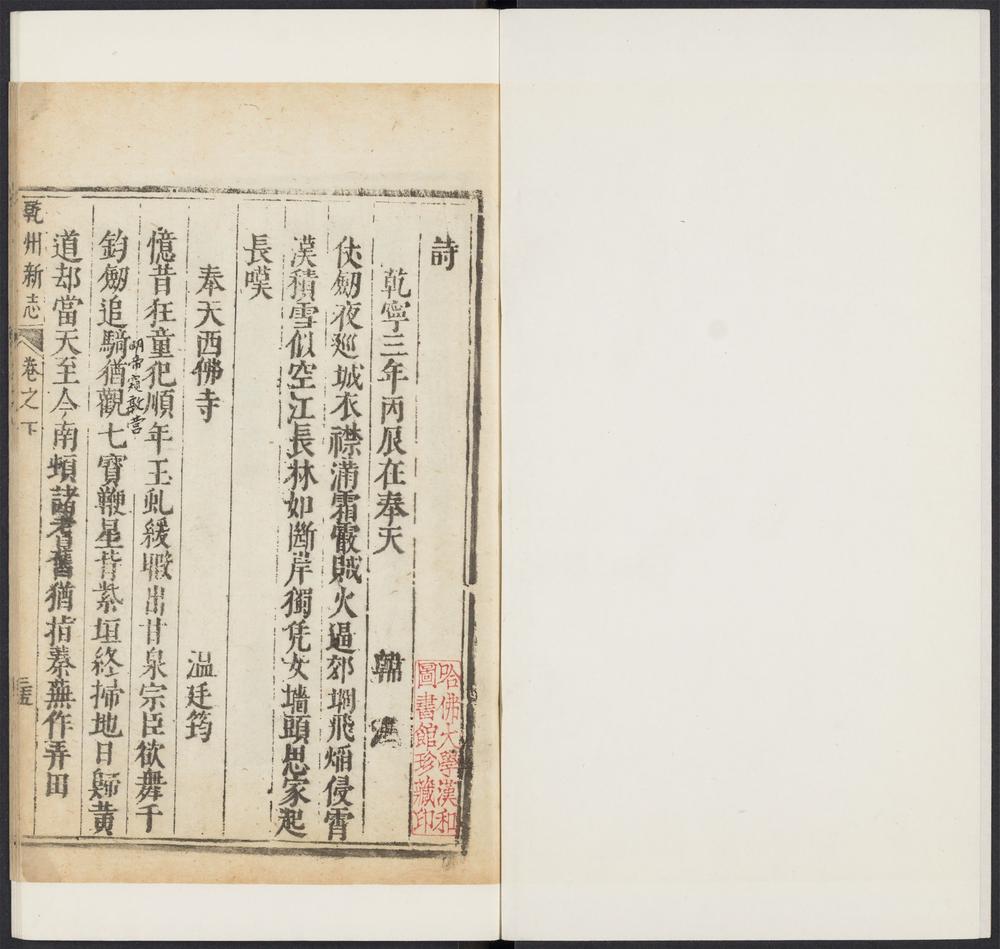 詩
乾寧三年丙辰在奉天 韓
仗劒夜廵城衣襟滿霜霰賊火逼郊坰飛熖侵霄
漢積雪似空江長林如斷岸獨凭女墻頭思家起
長嘆
奉天西佛寺 温廷筠
憶昔狂童犯順年玉虬緩轡出甘泉宗臣欲舞千
鈞劒追騎猶觀七寳鞭星背紫垣終掃地日歸黄
明帝窺敦營
道却當天至今南頓諸耆舊猶指蓁蕪作弄田
乾州新志 卷之下 三五
哈佛大學漢和
圖書館珍藏印